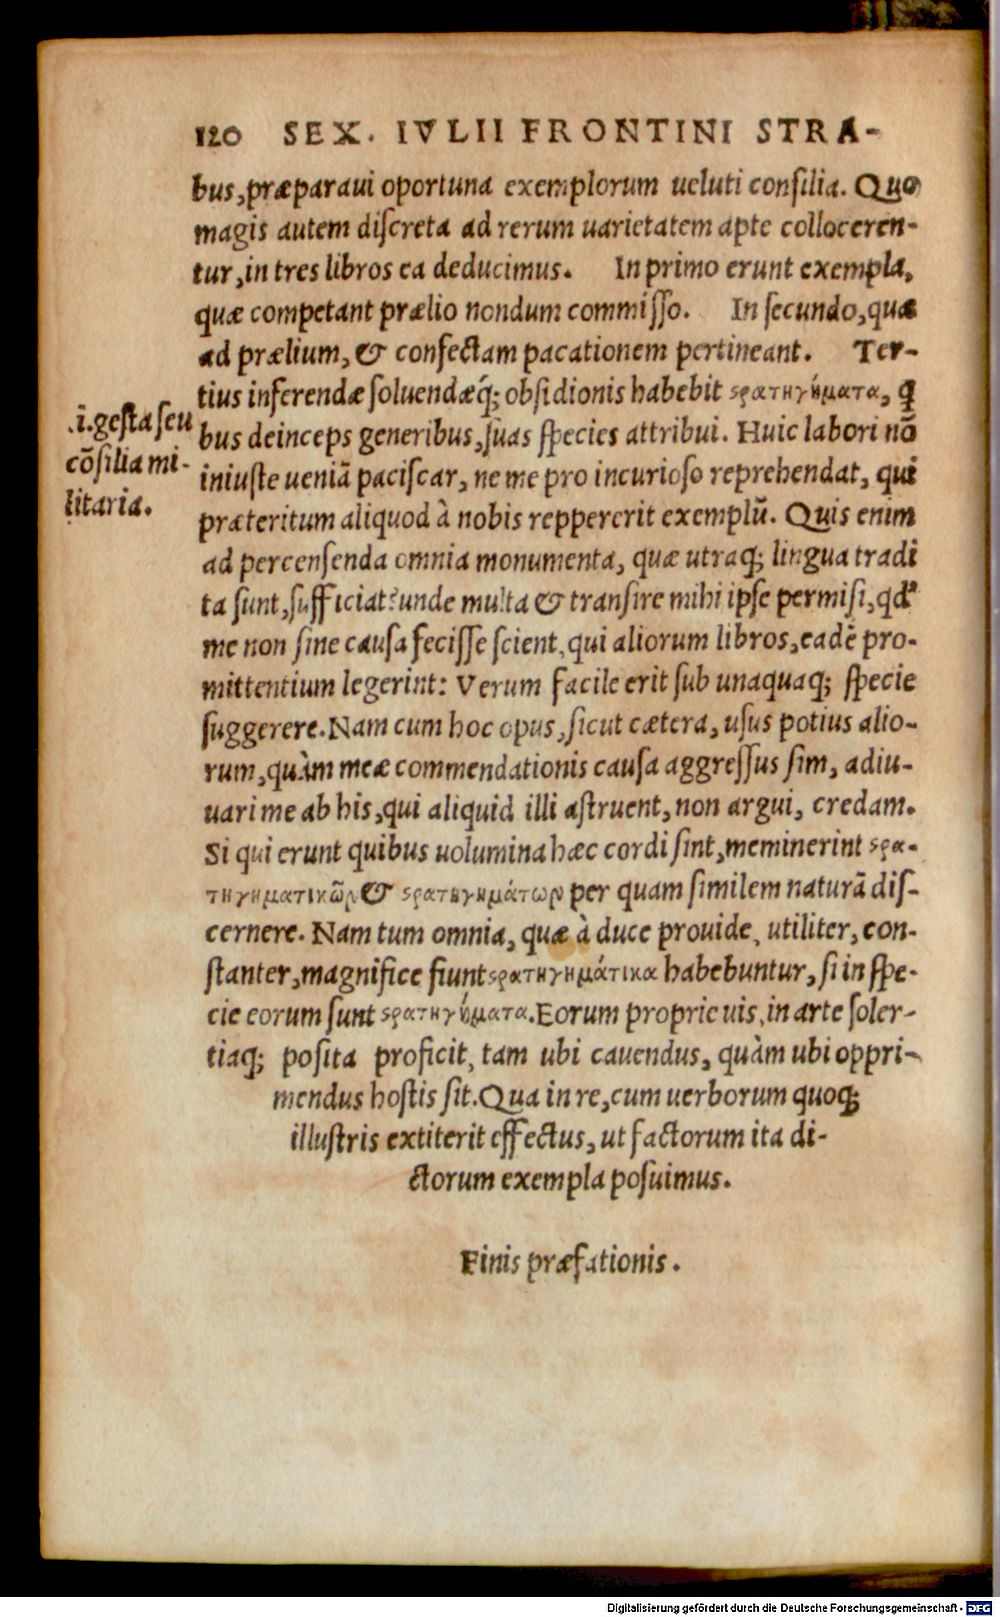 120 SEX. IVLII FRONTINI STRA-
bus, præparaui oportuna exemplorum ueluti consilia. Quo
magis autem discreta ad rerum uarietatem apte colloceren-
tur, in tres libros ea deducimus. In primo erunt exempla,
quæ competant prælio nondum commisso. In secundo, quæ
ad prælium, & confectam pacationem pertineant. Ter-
tius inferendæ soluendæq́; obsidionis habebit ϛρατηγήματα, q
bus deinceps generibus, suas species attribui. Huic labori nō
iniuste ueniā paciscar, ne me pro incurioso reprehendat, qui
præteritum aliquod à nobis reppererit exemplū. Quis enim
ad percensenda omnia monumenta, quæ utraq; lingua tradi
ta sunt, sufficiat? unde multa & transire mihi ipse permisi, qd'
me non sine causa fecisse scient, qui aliorum libros, eadē pro-
mittentium legerint: Verum facile erit sub unaquaq; specie
suggerere. Nam cum hoc opus, sicut cætera, usus potius alio-
rum, quàm meæ commendationis causa aggressus sim, adiu-
uari me ab his, qui aliquid illi astruent, non argui, credam.
Si qui erunt quibus uolumina hæc cordi sint, meminerint ϛρα-
τηγηματικῶν & ϛρατηγημάτων per quam similem naturā dis-
cernere. Nam tum omnia, quæ à duce prouide, utiliter, con-
stanter, magnifice fiunt ϛρατηγημάτικα habebuntur, si in spe-
cie eorum sunt ϛρατηγήματα. Eorum proprie uis, in arte soler-
tiaq; posita proficit, tam ubi cauendus, quàm ubi oppri-
mendus hostis sit. Qua in re, cum uerborum quoq;
illustris extiterit effectus, ut factorum ita di-
ctorum exempla posuimus.
Finis præfationis.
.i. gesta seu
cōsilia mi-
litaria.
Digitalisierung gefördert durch die Deutsche Forschungsgemeinschaft - DFG